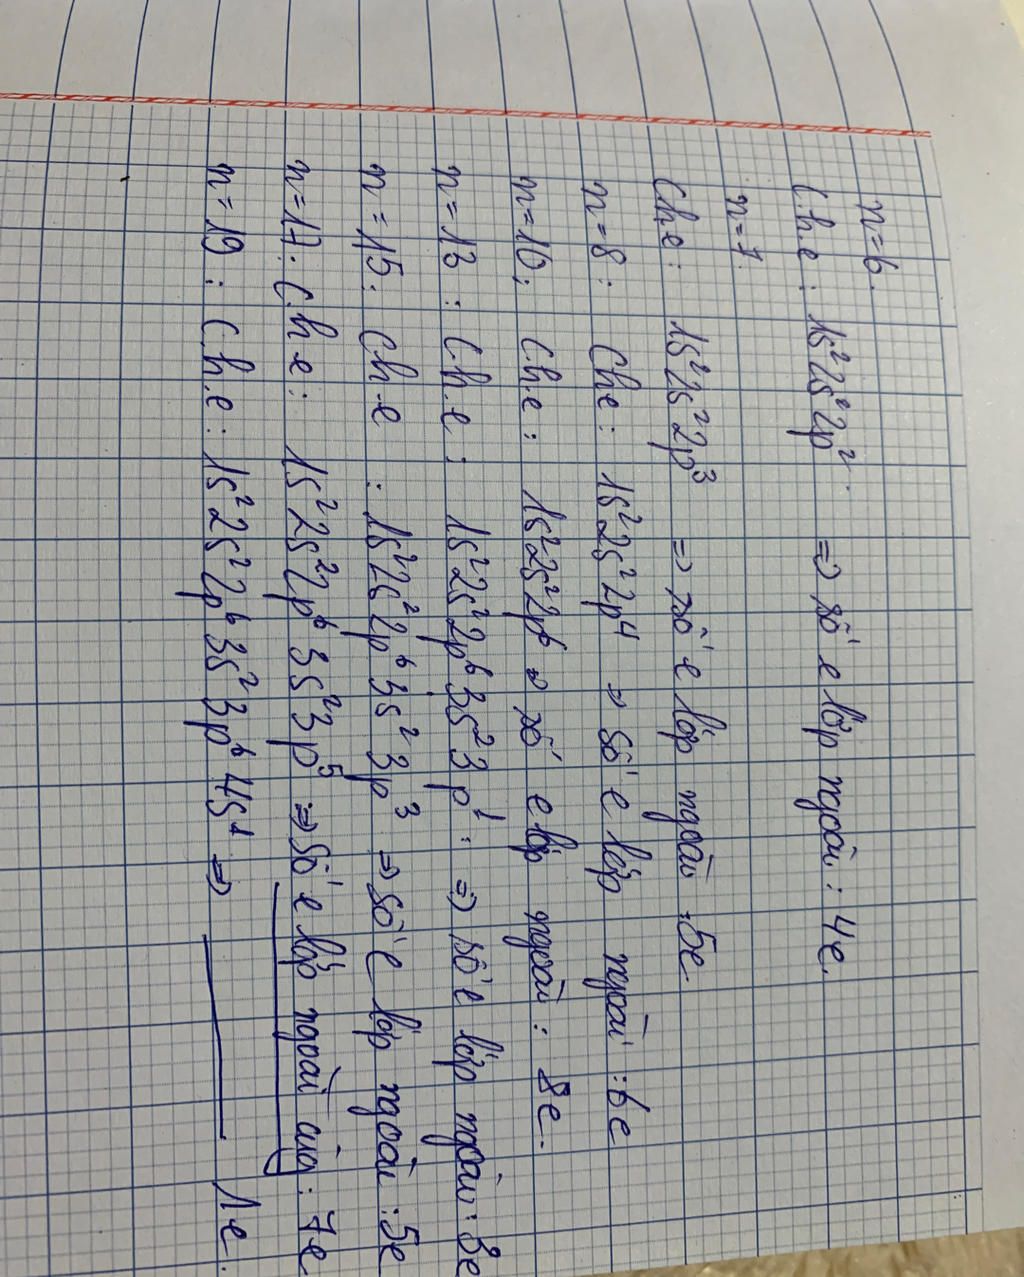 n=6.
C.h.e : 1s² 2s² 2p². => số e lớp ngoài : 4e.
n=7.
C.h.e : 1s² 2s² 2p³ => số e lớp ngoài : 5e.
n=8 : C.h.e : 1s² 2s² 2p⁴ => số e lớp ngoài : 6e
n=10 : C.h.e : 1s² 2s² 2p⁶ => số e lớp ngoài : 8e.
n=13 : C.h.e : 1s² 2s² 2p⁶ 3s² 3p¹ . => số e lớp ngoài : 3e
n=15 : C.h.e : 1s² 2s² 2p⁶ 3s² 3p³ => số e lớp ngoài : 5e
n=17 : C.h.e : 1s² 2s² 2p⁶ 3s² 3p⁵ => số e lớp ngoài cùng : 7e
n=19 : C.h.e : 1s² 2s² 2p⁶ 3s² 3p⁶ 4s¹ => 1e.